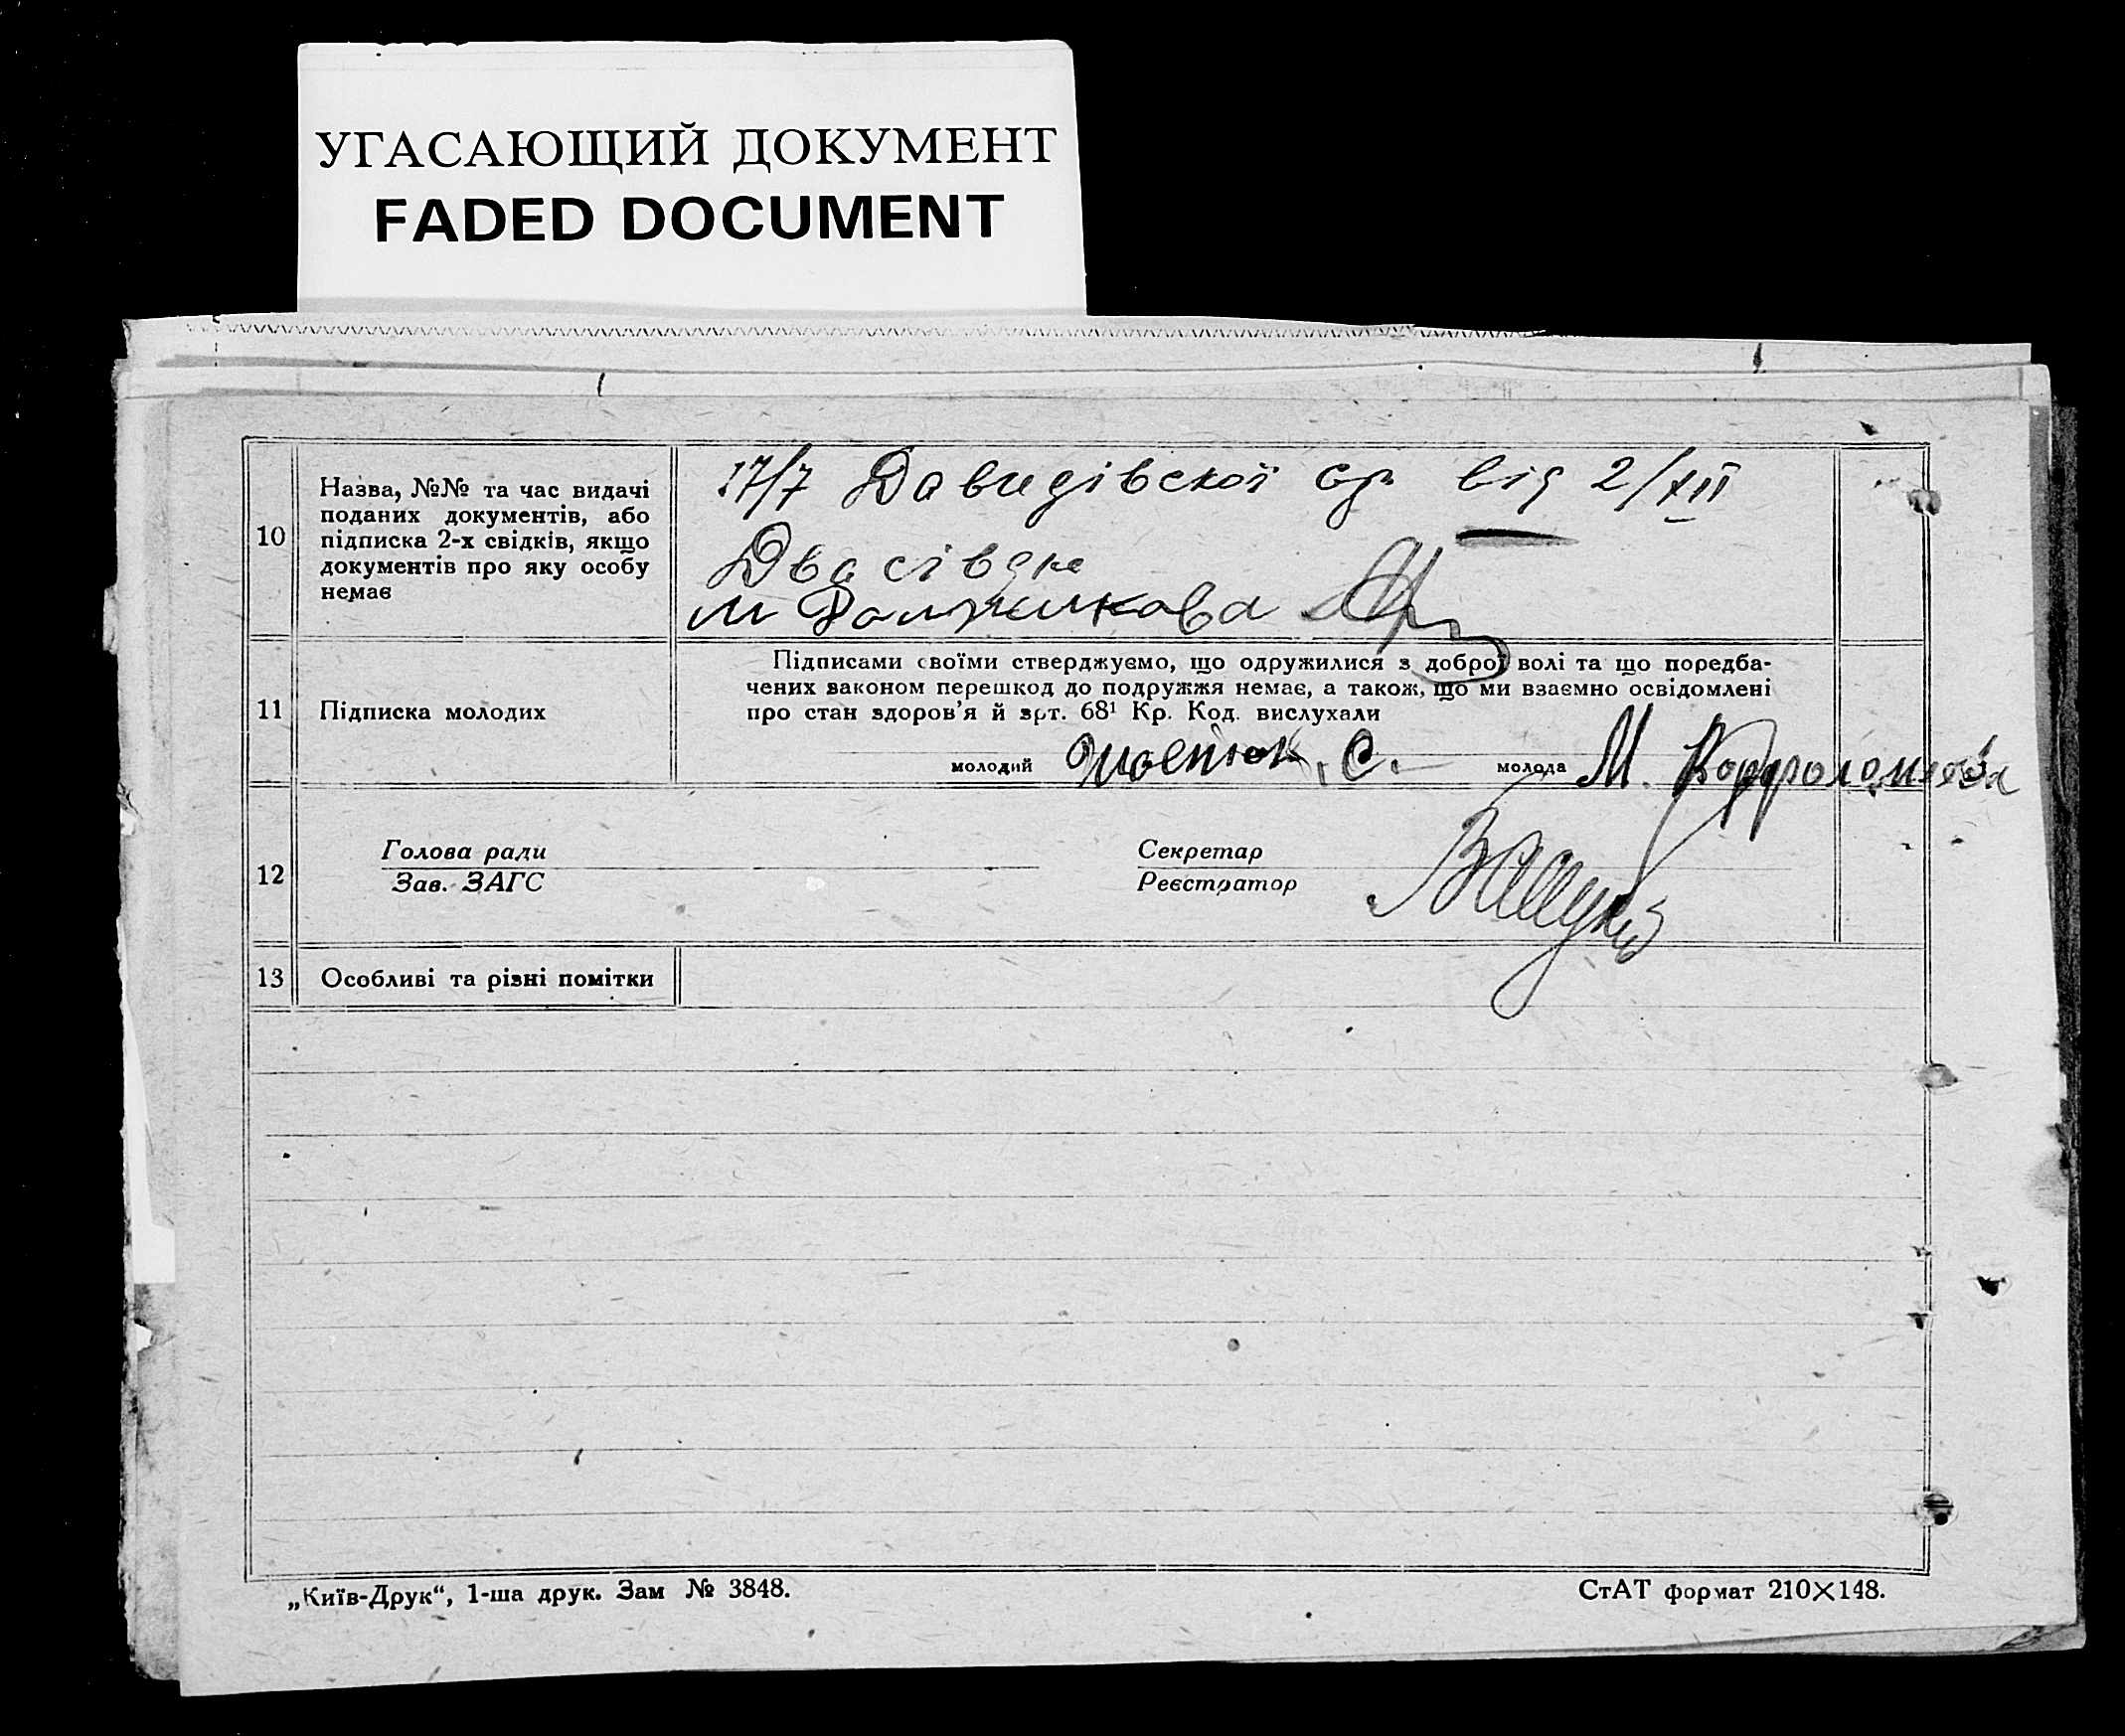 УГАСАЮЩИЙ ДОКУМЕНТ
FADED DOCUMENT
10
Назва, №№ та час видачі
поданих документів, або
підписка 2-х свідків, якщо
документів про яку особу
немає
17/7 Давидівскої ср від 2/XII
Два свідке
М
11
Підписка молодих
Підписами своїми стверджуємо, що одружилися з доброї волі та що поредба-
чених законом перешкод до подружжя немає, а також, що ми взаємно освідомлені
про стан здоров'я й арт. 68¹ Кр. Код. вислухали
молодий С. молода М. Варфоломеєва
12
Голова ради
Зав. ЗАГС
Секретар
Реєстратор
13
Особливі та різні помітки
„Київ-Друк“, 1-ша друк. Зам № 3848.
СтАТ формат 210×148.